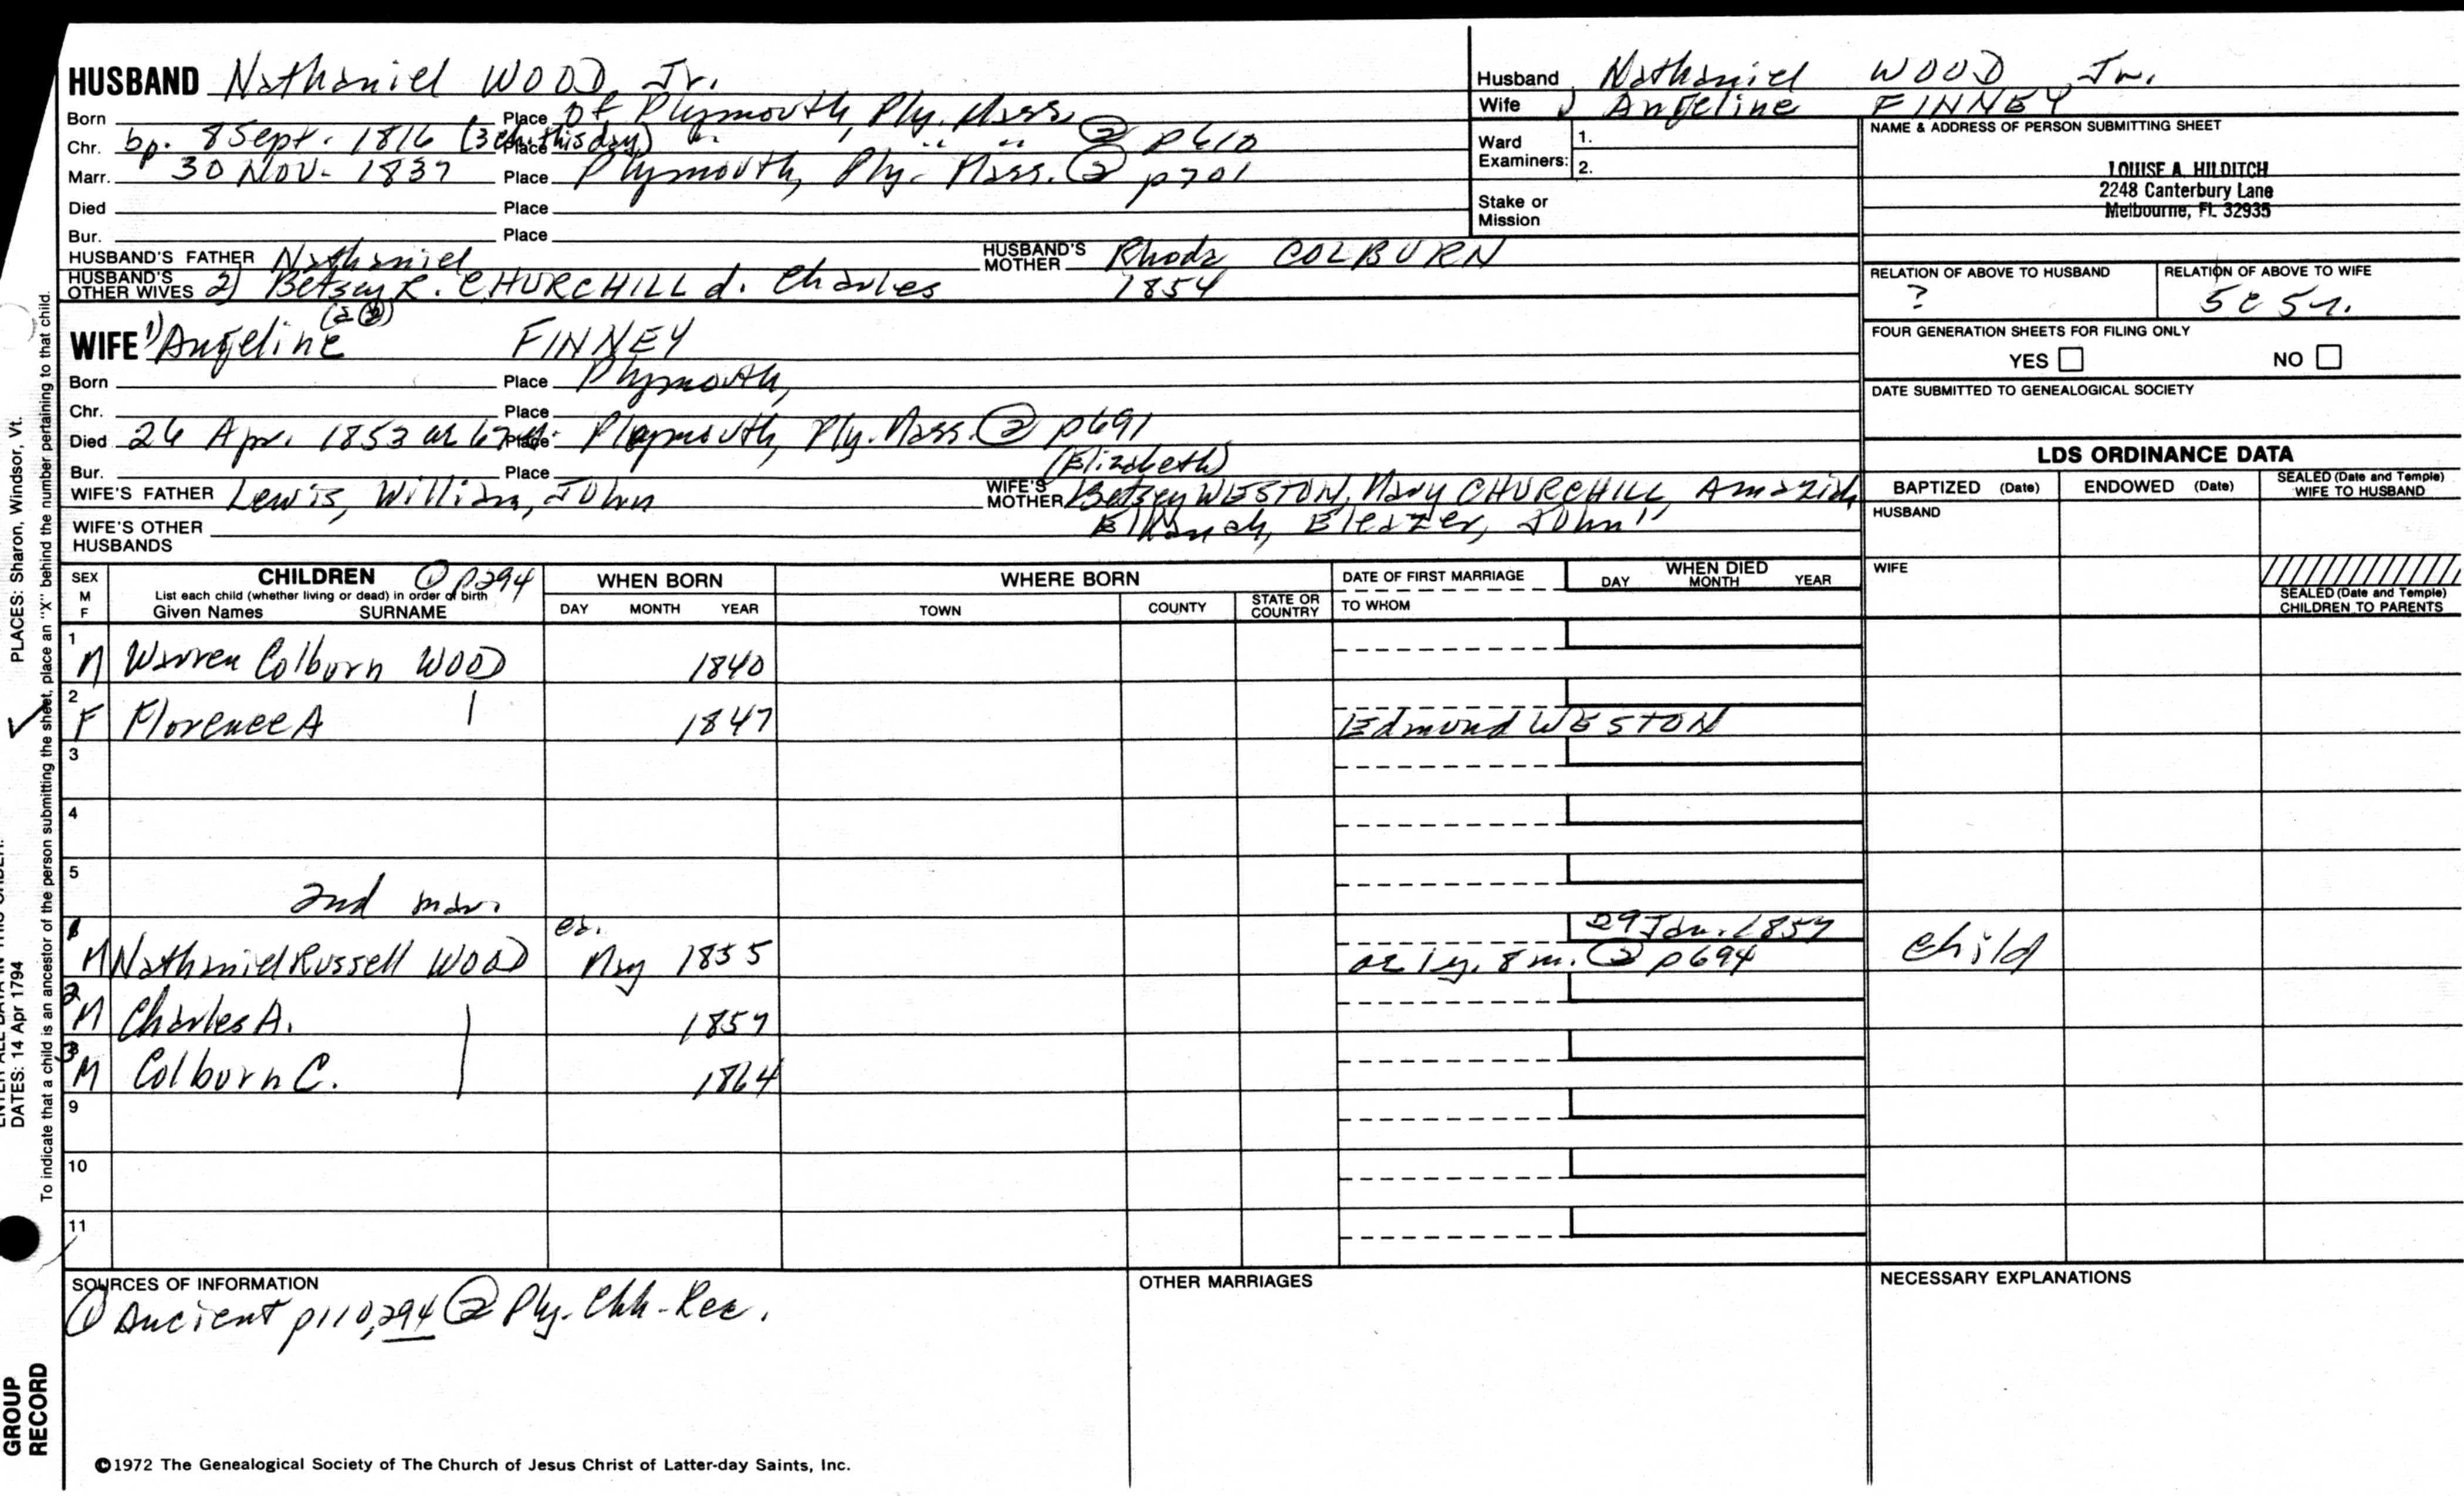 HUSBAND Nathaniel WOOD, Jr.
Born Place Of Plymouth, Ply. Mass.
Chr. bp. 8 Sept. 1816 (3 ch. this day) Place " " " ② p610
Marr. 30 Nov. 1837 Place Plymouth, Ply. Mass. ② p701
Died Place
Bur. Place
HUSBAND'S FATHER Nathaniel HUSBAND'S MOTHER Rhoda COLBURN
HUSBAND'S OTHER WIVES 2) Betsey R. CHURCHILL d. Charles 1854
WIFE 1) Angeline FINNEY
Born Place Plymouth,
Chr. Place
Died 26 Apr. 1853 Place Plymouth, Ply. Mass. ② p691
Bur. Place (Elizabeth)
WIFE'S FATHER Lewis, William, John WIFE'S MOTHER Betsey WESTON, Mary CHURCHILL, Amaziah
Elkanah, Eleazer, John "
WIFE'S OTHER HUSBANDS
Husband Nathaniel WOOD Jr.
Wife Angeline FINNEY
Ward Examiners: 1.
2.
Stake or Mission
NAME & ADDRESS OF PERSON SUBMITTING SHEET
LOUISE A. HILDITCH
2248 Canterbury Lane
Melbourne, FL 32935
RELATION OF ABOVE TO HUSBAND RELATION OF ABOVE TO WIFE
? 5c 5r.
FOUR GENERATION SHEETS FOR FILING ONLY
YES NO
DATE SUBMITTED TO GENEALOGICAL SOCIETY
LDS ORDINANCE DATA
BAPTIZED (Date) ENDOWED (Date) SEALED (Date and Temple) WIFE TO HUSBAND
HUSBAND
WIFE
SEALED (Date and Temple) CHILDREN TO PARENTS
SEX M F CHILDREN ① p294 WHEN BORN WHERE BORN DATE OF FIRST MARRIAGE WHEN DIED
List each child (whether living or dead) in order of birth DAY MONTH YEAR
Given Names SURNAME DAY MONTH YEAR TOWN COUNTY STATE OR COUNTRY TO WHOM
1 M Warren Colburn WOOD 1840
2 F Florence A 1847 Edmund WESTON
3
4
5
2nd mar.
1 M Nathaniel Russell WOOD ca. May 1855 29 Jan. 1857 ae 1y. 8m. ② p694 child
2 M Charles A. 1857
3 M Colburn C. 1864
9
10
11
SOURCES OF INFORMATION
① Ancient p110,294 ② Ply. Chh. Rec.
OTHER MARRIAGES
NECESSARY EXPLANATIONS
©1972 The Genealogical Society of The Church of Jesus Christ of Latter-day Saints, Inc.
PLACES: Sharon, Windsor, Vt.
DATES: 14 Apr 1794
To indicate that a child is an ancestor of the person submitting the sheet, place an "X" behind the number pertaining to that child.
GROUP
RECORD